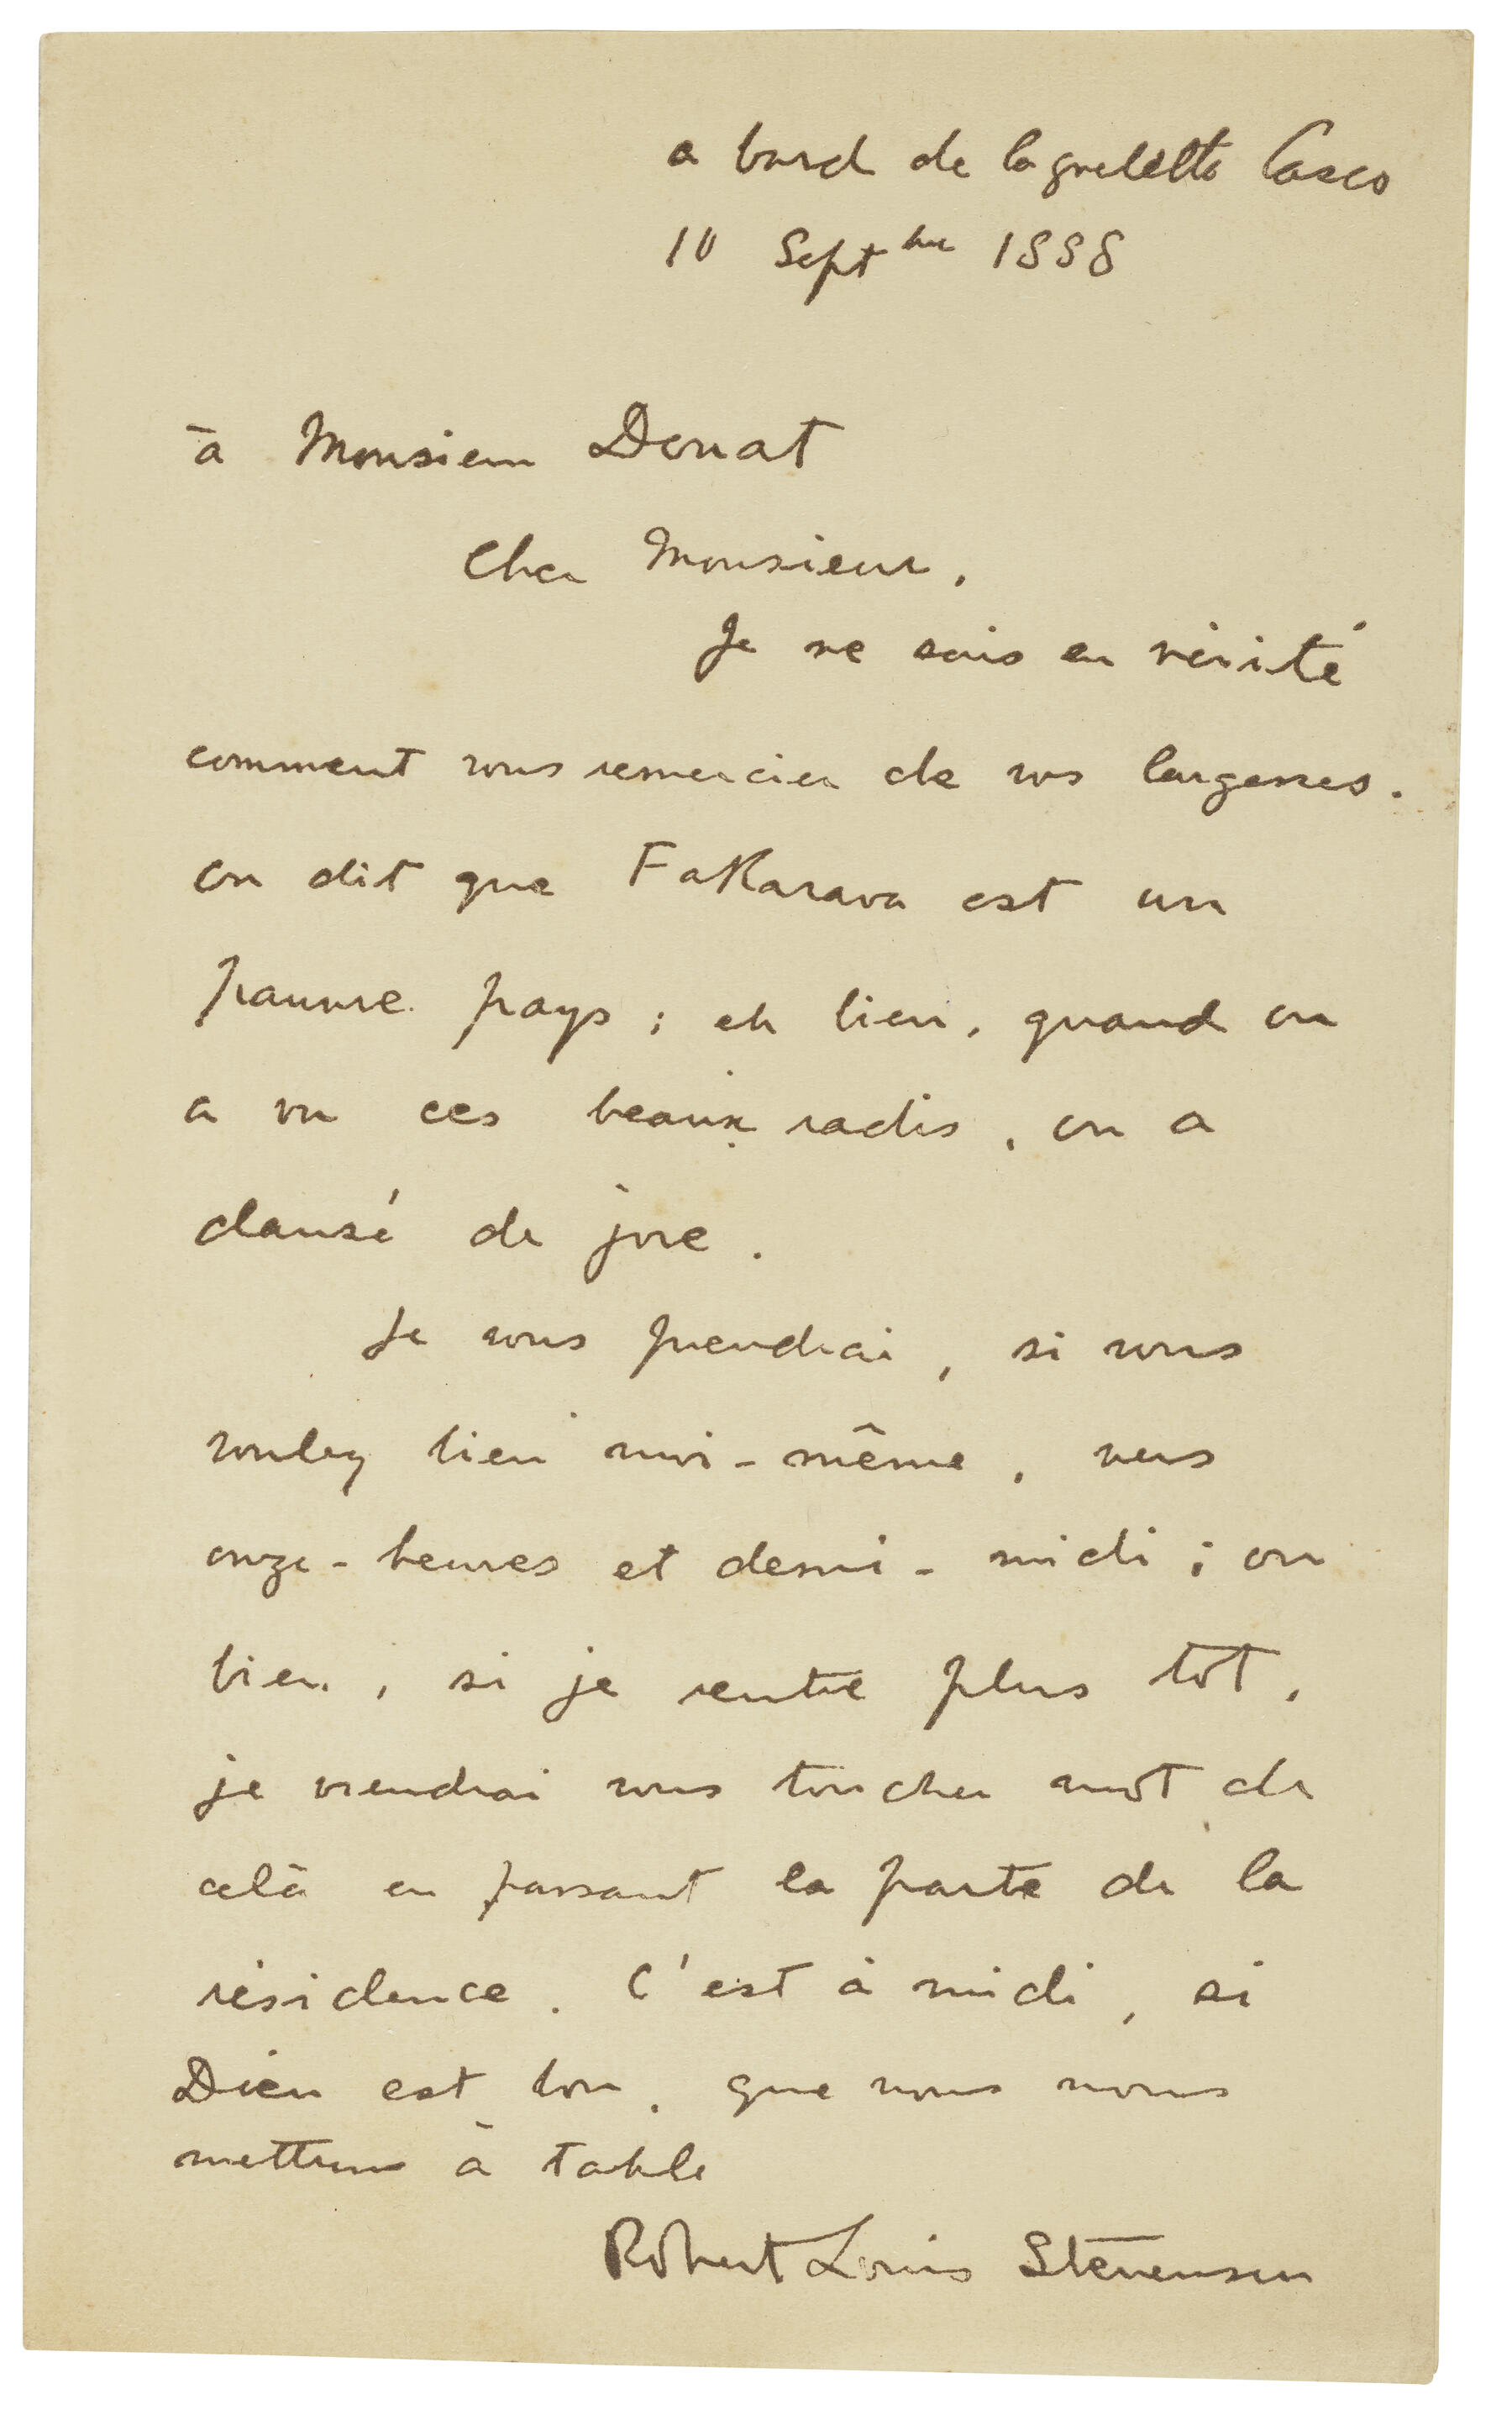 a bord de la goelette Casco
10 Septbre 1888
à Monsieur Donat
Cher Monsieur,
Je ne sais en vérité
comment vous remercier de vos largesses.
on dit que Fakarava est un
pauvre pays ; eh bien, quand on
a vu ces beaux radis, on a
dansé de joie.
Je vous prendrai, si vous
voulez bien moi-même, vers
onze-heures et demi-midi ; ou
bien, si je rentre plus tôt,
je viendrai vous toucher mot de
celà en passant la porte de la
résidence. C'est à midi, si
Dieu est bon, que nous nous
mettrons à table
Robert Louis Stevenson